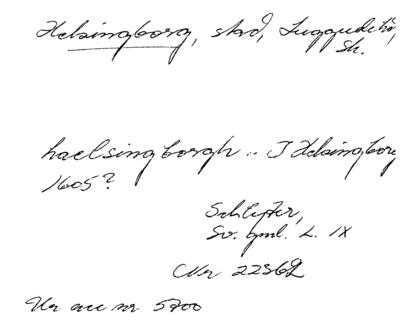 Helsingborg, stad, Luggude hd,
Sk.
haelsingborgh .. I Helsingborg
1605?
Schlyter,
Sv. gml. L. IX
Nr 22362
Ur acc nr 5700